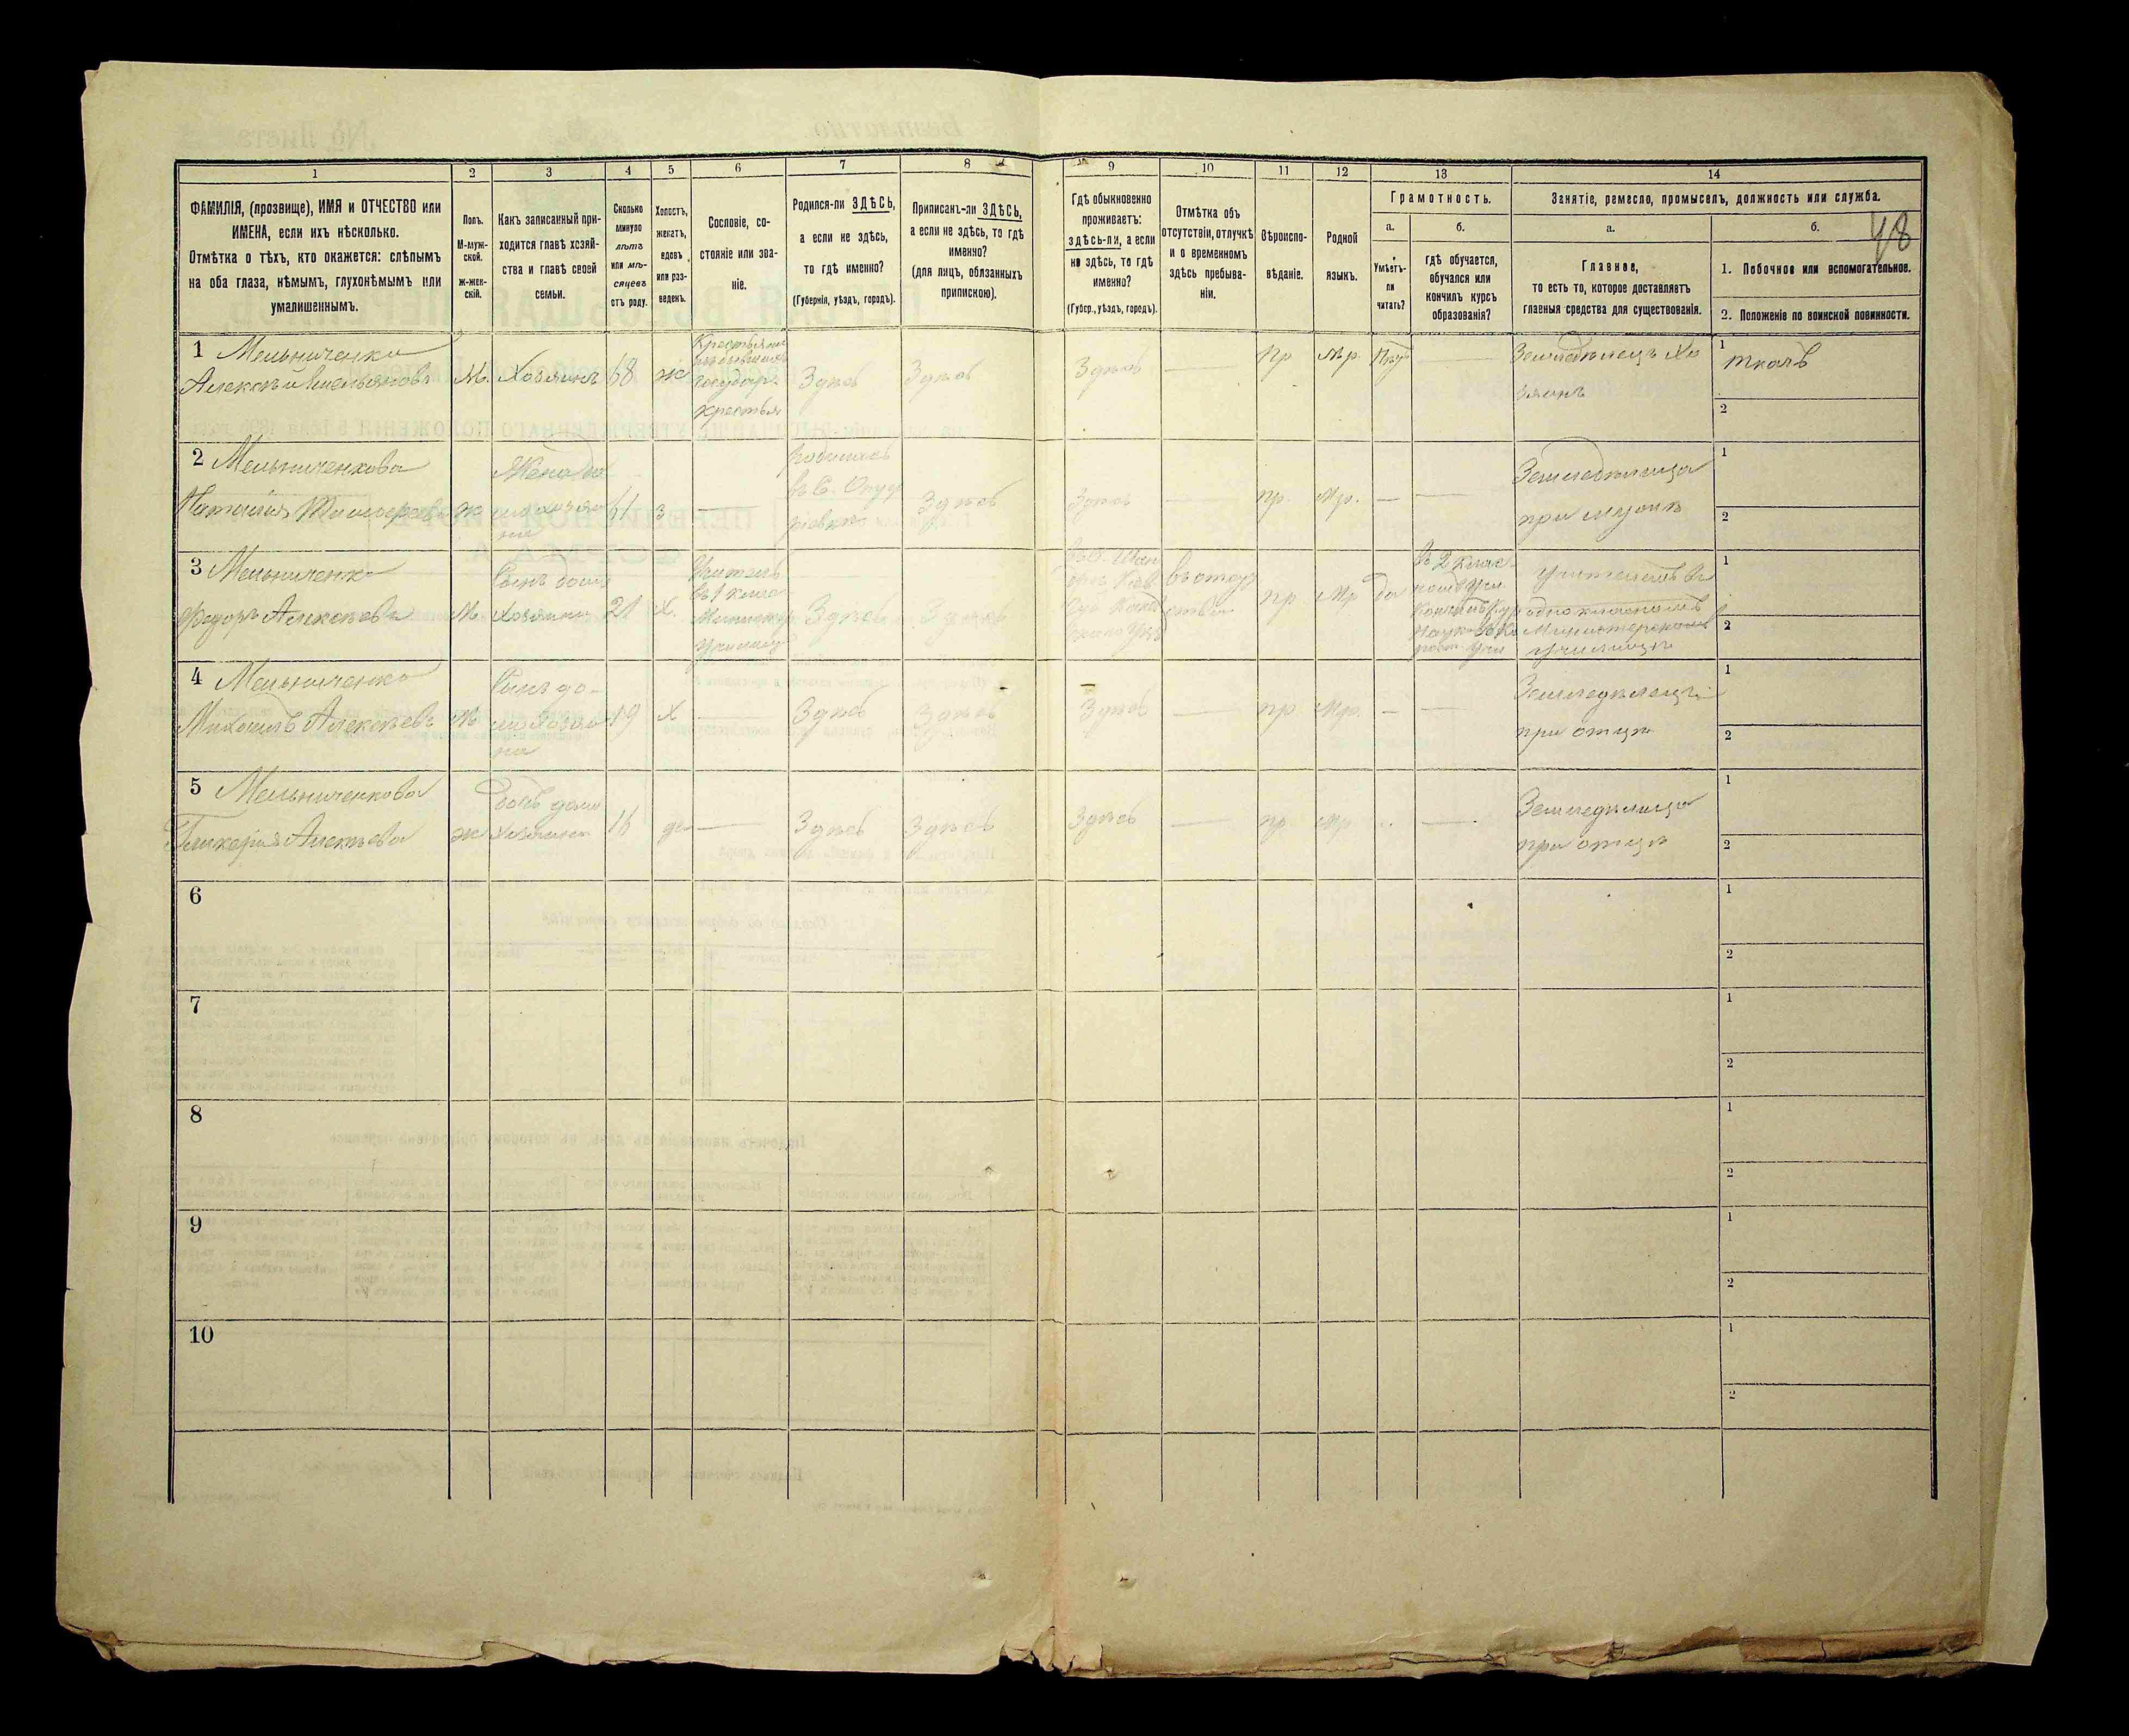 1
2
3
4
5
6
7
8
9
10
11
12
13
14
ФАМИЛІЯ, (прозвище), ИМЯ и ОТЧЕСТВО или
ИМЕНА, если ихъ нѣсколько.
Отмѣтка о тѣхъ, кто окажется: слѣпымъ
на оба глаза, нѣмымъ, глухонѣмымъ или
умалишеннымъ.
Полъ.
М-муж-
ской.
Ж-жен-
скій.
Какъ записанный при-
ходится главѣ хозяй-
ства и главѣ своей
семьи.
Сколько
минуло
лѣтъ
или мѣ-
сяцевъ
отъ роду.
Холостъ,
женатъ,
вдовъ
или раз-
веденъ.
Сословіе, со-
стояніе или зва-
ніе.
Родился-ли ЗДѢСЬ,
а если не здѣсь,
то гдѣ именно?
(Губернія, уѣздъ, городъ).
Приписанъ-ли ЗДѢСЬ,
а если не здѣсь, то гдѣ
именно?
(для лицъ, обязанныхъ
припискою).
Гдѣ обыкновенно
проживаетъ:
здѣсь-ли, а если
не здѣсь, то гдѣ
именно?
(Губер., уѣздъ, городъ).
Отмѣтка объ
отсутствіи, отлучкѣ
и о временномъ
здѣсь пребыва-
ніи.
Вѣроиспо-
вѣданіе.
Родной
языкъ.
Грамотность.
а.
Умѣетъ-
ли
читать?
б.
гдѣ обучается,
обучался или
кончилъ курсъ
образованія?
Занятіе, ремесло, промыселъ, должность или служба.
а.
Главное,
то есть то, которое доставляетъ
главныя средства для существованія.
б.
48
1. Побочное или вспомогательное.
2. Положеніе по воинской повинности.
1 Мельниченко
Алексѣй Емельяновъ
М.
Хозяинъ
68
ж
государ.
крестья
Здѣсь
Здѣсь
Здѣсь
—
пр
Мр.
—
Земледѣлецъ Хо
зяинъ
1
ткачъ
2
2 Мельниченкова
Наталия
ж
Жена до
61
з
—
родилась
въ С.
Здѣсь
Здѣсь
—
пр.
Мр.
—
—
Земледѣлица
при мужѣ
1
2
3 Мельниченко
Федоръ Алексѣевъ
М
Сынъ дом
хозяина
21
Х.
Учитель
въ 1 класс
Училищ
Здѣсь
Здѣсь
пр
Мр
да
въ 2 клас
учителемъ въ
одноклассномъ
Министерскомъ
училищѣ
1
2
4 Мельниченко
Михаилъ Алексѣевъ
М
Сынъ до-
мохозяи
на
19
Х
—
Здѣсь
Здѣсь
Здѣсь
—
пр
Мр.
—
—
Земледѣлецъ
при отцѣ
1
2
5 Мельниченкова
Гликерия Алексѣева
ж
Дочь домо
хозяина
16
де
—
Здѣсь
Здѣсь
Здѣсь
—
пр.
Мр
—
Земледѣлица
при отцѣ
1
2
6
1
2
7
1
2
8
1
2
9
1
2
10
1
2